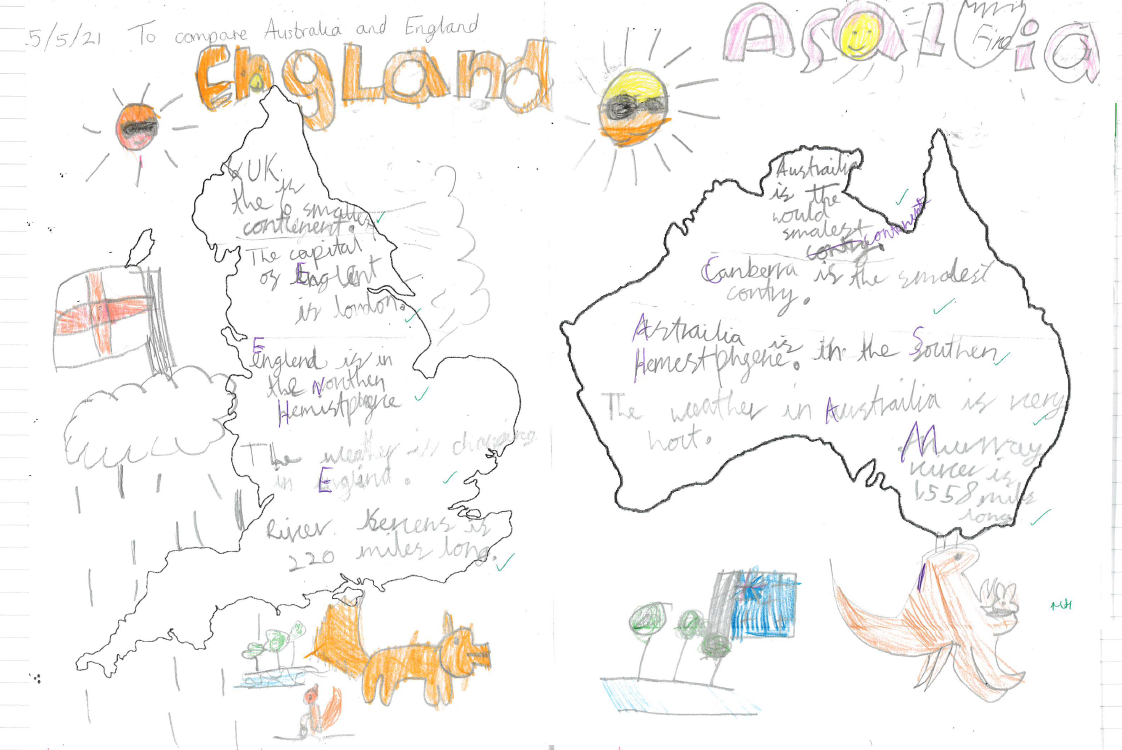 5/5/21 To compare Australia and England
England
UK
the is
the 6 smallest
contienent.
The capital
of England
is london.
England is in
the Northen
Hemestphgne
The weather is changing
in England.
River is
220 miles long.
Fine
Austrailia
is the
would
smalest
contry continent
Canberra is the smalest
contry.
Astrailia is in the Southen
Hemestphgene.
The weather in Austrailia is very
hout.
Murray
river is
1558 miles
long
MH